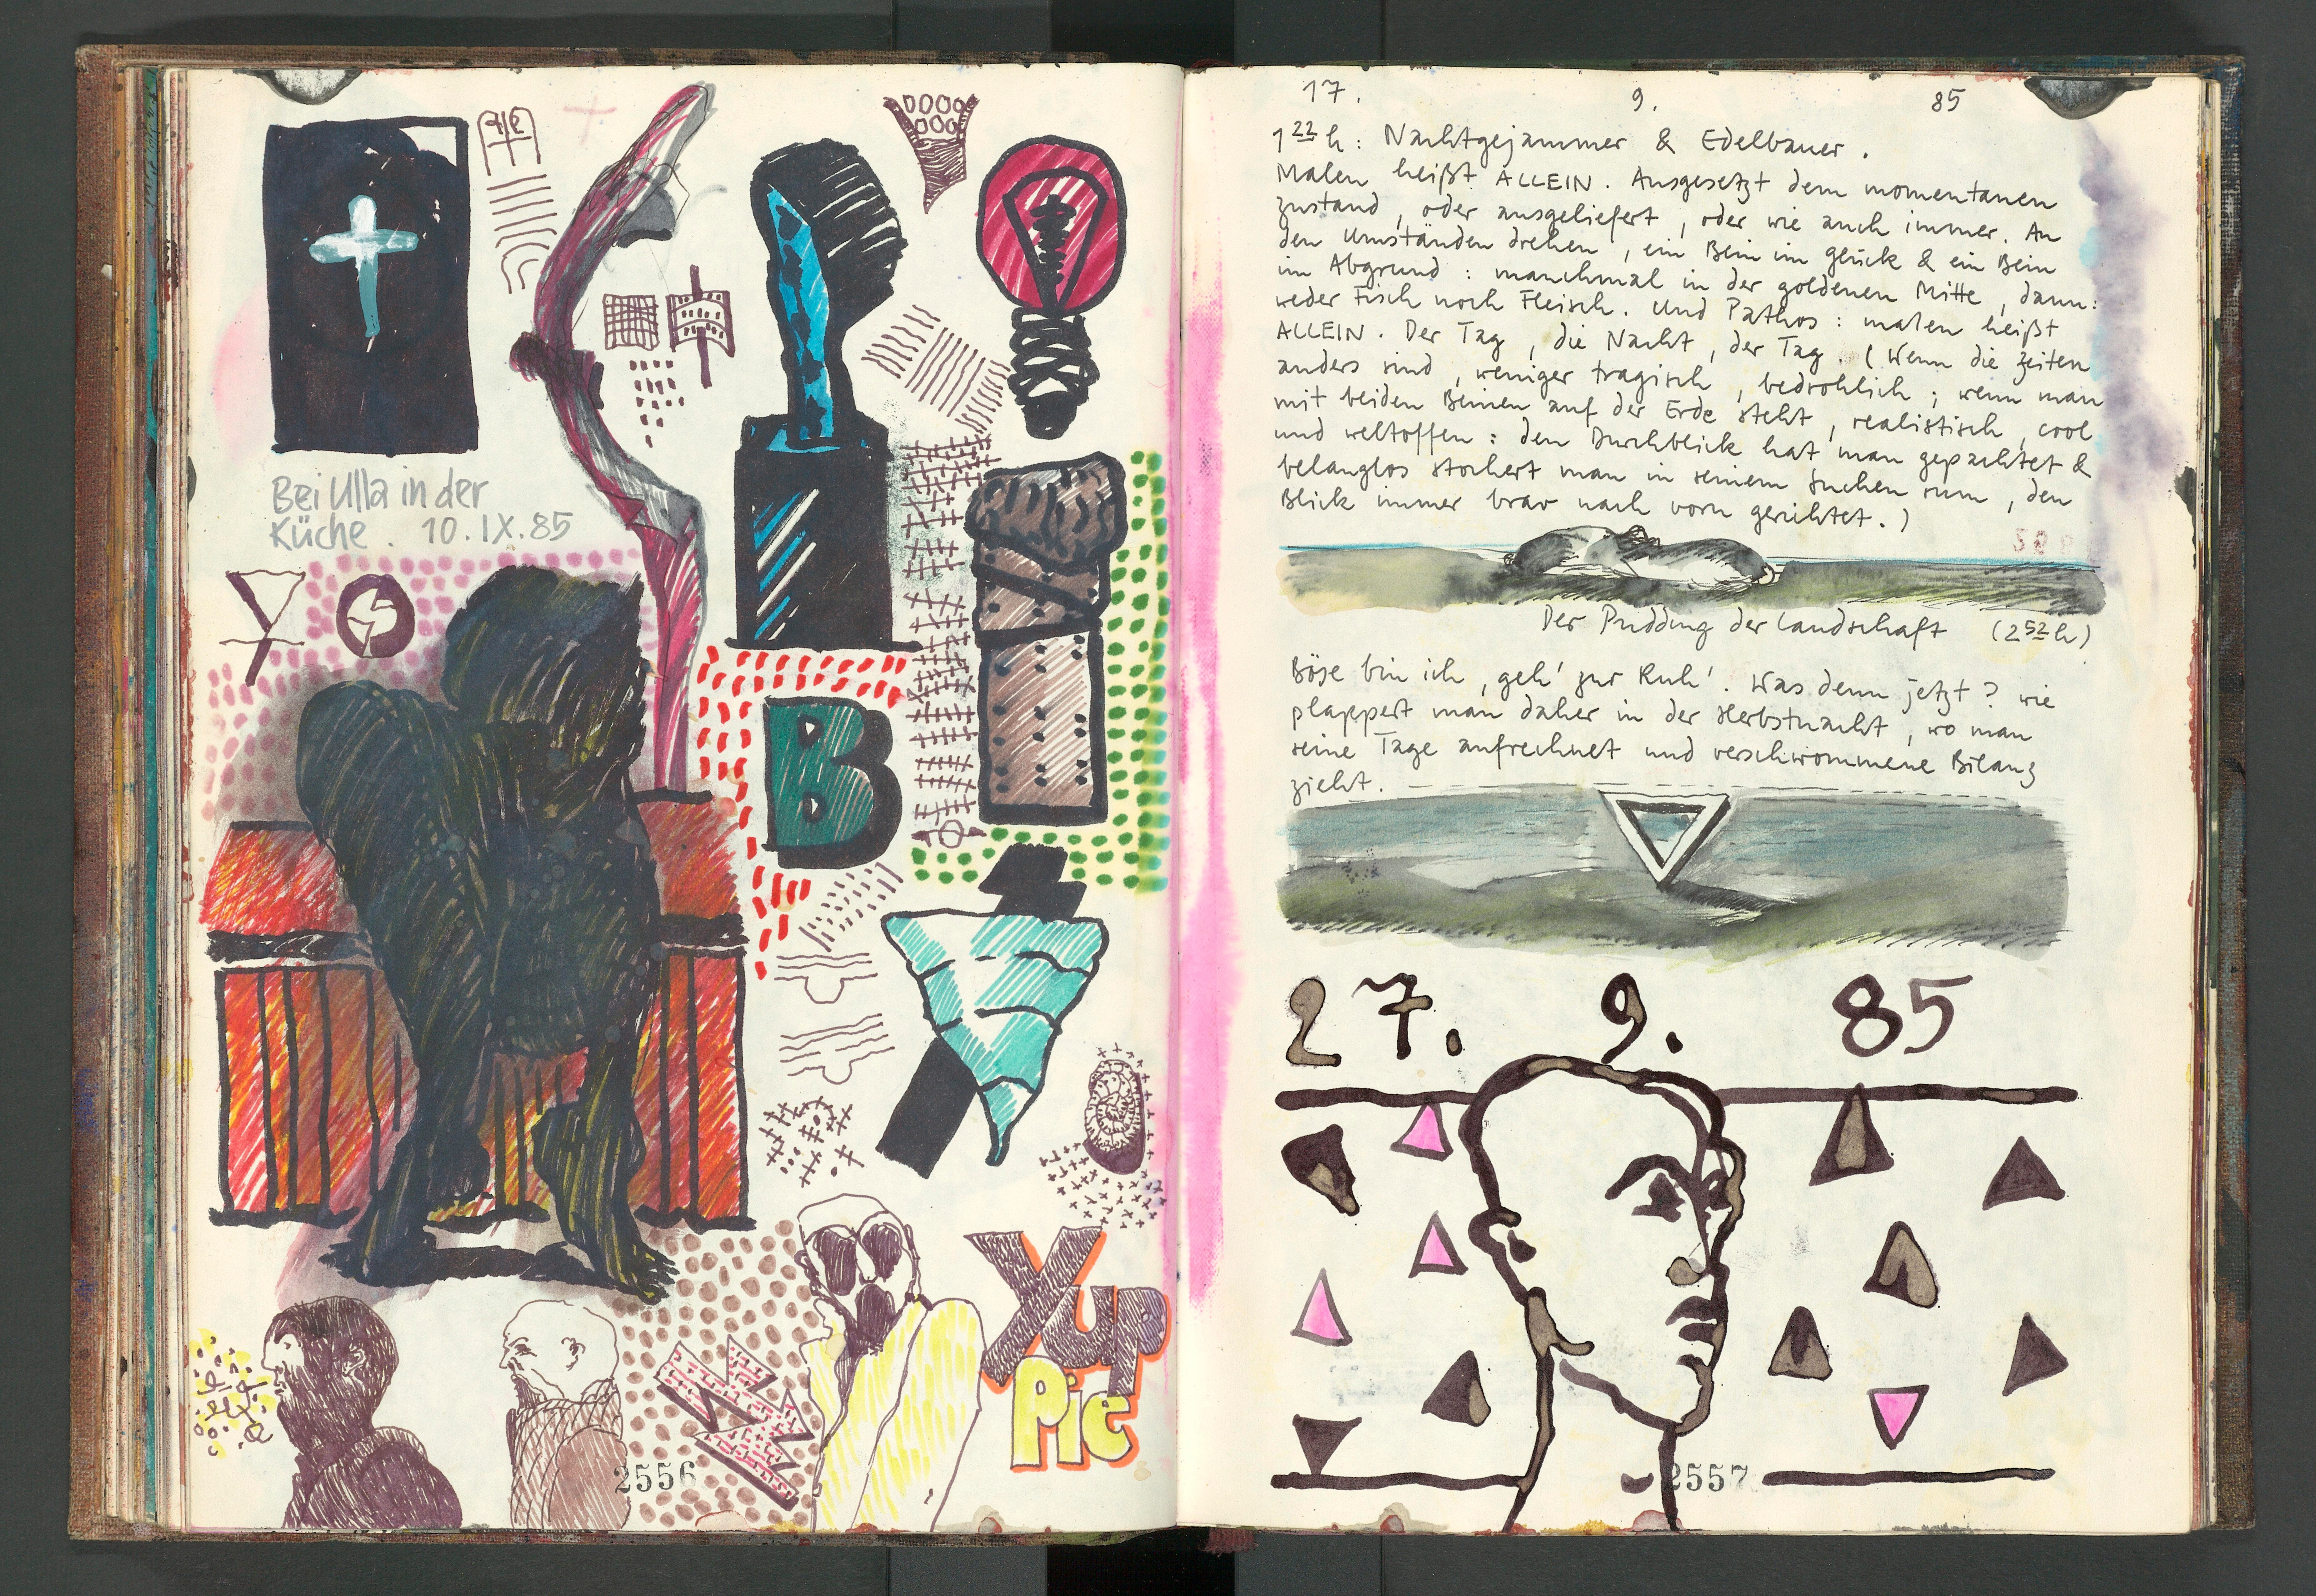 Bei Ulla in der
Küche. 10.IX.85
B
Yup
pie
2556
17. 9. 85
1 22 h: Nachtgejammer & Edelbauer.
Malen heißt ALLEIN. Ausgesetzt dem momentanen
zustand, oder ausgeliefert, oder wie auch immer. An
den Umständen drehen, ein Bein im Glück & ein Bein
im Abgrund: manchmal in der goldenen Mitte, dann:
weder Fisch noch Fleisch. Und Pathos: malen heißt
ALLEIN. Der Tag, die Nacht, der Tag. (Wenn die Zeiten
anders sind, weniger tragisch, bedrohlich; wenn man
mit beiden Beinen auf der Erde steht, realistisch, cool
und weltoffen: den Durchblick hat man gepachtet &
belanglos stochert man in seinem Suchen rum, den
Blick immer brav nach vorn gerichtet.)
Der Pudding der Landschaft (2 52 h)
Böse bin ich, geh' zur Ruh'. Was denn jetzt? Wie
plappert man daher in der Herbstnacht, wo man
seine Tage aufrechnet und verschwommene Bilanz
zieht.
27. 9. 85
2557